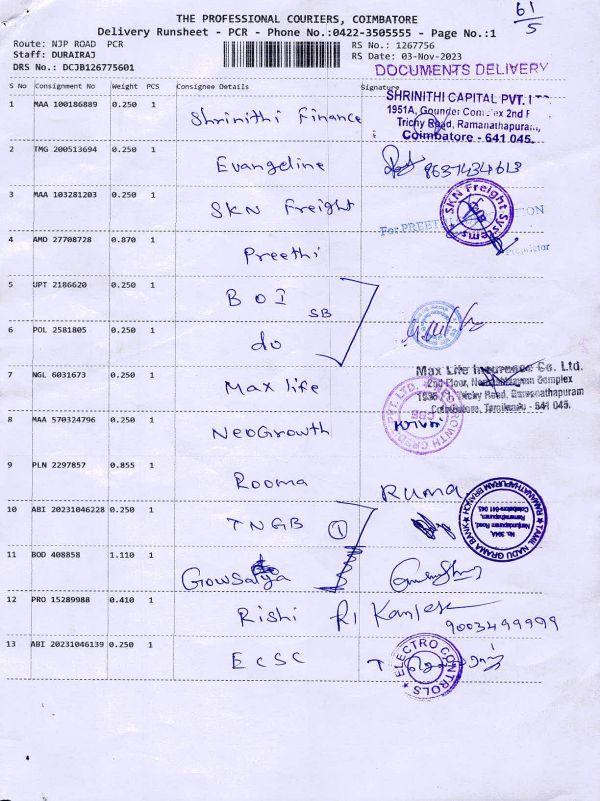 61/5
THE PROFESSIONAL COURIERS, COIMBATORE
Delivery Runsheet - PCR - Phone No.:0422-3505555 - Page No.:1
Route: NJP ROAD PCR
RS No.: 1267756
Staff: DURAIRAJ
RS Date: 03-Nov-2023
DRS No.: DCJB126775601
DOCUMENTS DELIVERY
S No Consignment No Weight PCS Consignee Details Signature
1 MAA 100186889 0.250 1 Shrinithi Finance
SHRINITHI CAPITAL PVT.
1951A, Gounder Complex 2nd F
Trichy Road, Ramanathapuram,
Coimbatore - 641 045.
2 TMG 200513694 0.250 1 Evangeline 9637434613
3 MAA 103281203 0.250 1 SKN Freight
SKN Freight Systems
For PREETHI
Proprietor
4 AMD 27708728 0.870 1 Preethi
5 UPT 2186620 0.250 1 BOI SB
6 POL 2581805 0.250 1 do
7 NGL 6031673 0.250 1 Max life
Max Life Insurance Co. Ltd.
2nd Floor, Complex
Trichy Road, Ramanathapuram
Coimbatore, Tamilnadu - 641 045.
8 MAA 570324796 0.250 1 NeoGrowth
GROWTH CREDIT PVT. LTD.
CBE
9 PLN 2297857 0.855 1 Rooma RUMA
10 ABI 20231046228 0.250 1 TNGB 1
TAMIL NADU GRAMA BANK
RAMANATHAPURAM BRANCH
No. 304A,
Nanjundapuram Road,
Ramanathapuram,
Coimbatore-641 045.
11 BOD 408858 1.110 1 Gowsalya
12 PRO 15289988 0.410 1 Rishi
9003499999
13 ABI 20231046139 0.250 1 ECSC
ELECTRO CONTROLS